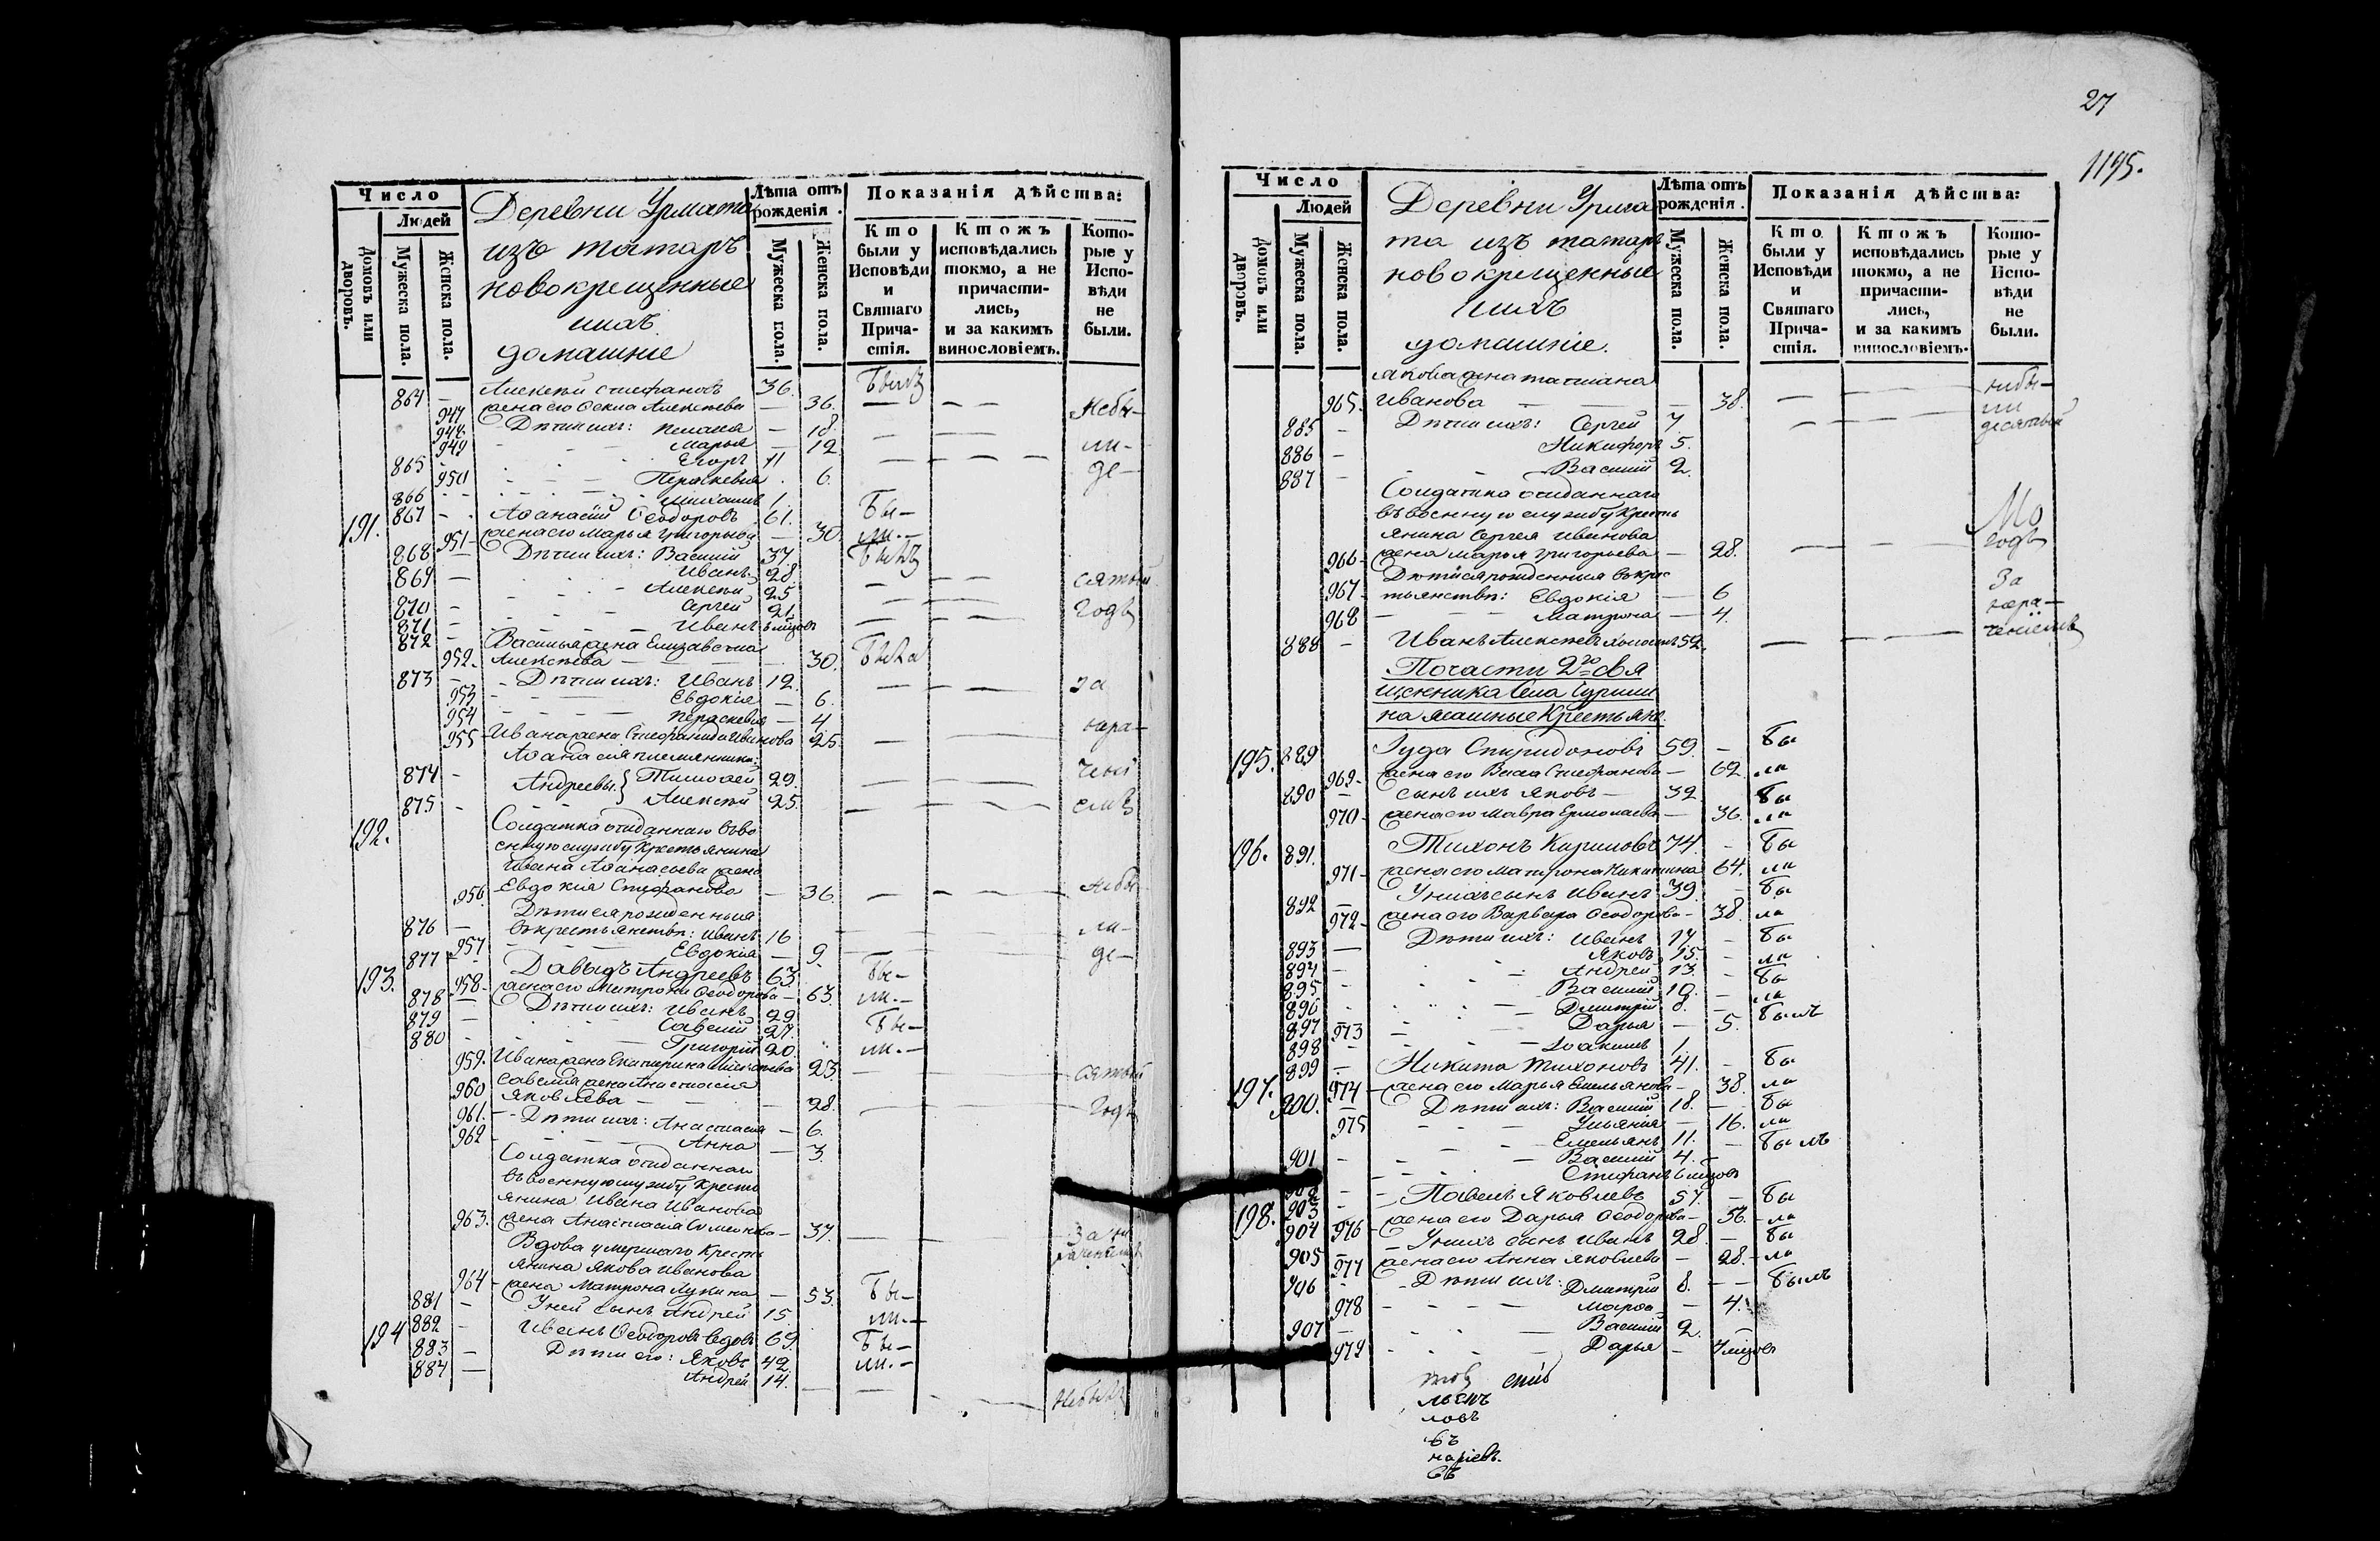 Число
Людей
Домовъ или дворовъ.
Мужеска пола.
Женска пола.
Деревни Урмата
изъ татаръ
новокрещенные
ихъ
домашніе
Лѣта отъ рожденія.
Мужеска пола.
Женска пола.
Показанія дѣйства:
Кто были у Исповѣди и Святаго Причастія.
Ктожъ исповѣдались токмо, а не причастились, и за какимъ винословіемъ.
Которые у Исповѣди не были.
864 — Алексѣй Стефановъ 36. Былъ
947 жена его Алексѣева — 36. Небы-
948 Дѣти ихъ: — 18.
949 Марья — 12. ли-
865 Егоръ 11
950 Параскевія 6. де-
866 Михаилъ 1.
191. 867 Аѳанасій Ѳеодоровъ 61. Бы-
951 жена его Марья Григорьева — 30. ли.-
868 — Дѣти ихъ: Василій 37 Былъ
869 — Иванъ 28
870 - Алексѣй 25 сятый
871 - Сергей 21. годъ
872 - Иванъ
Василья жена Елизавета
952. Алексѣева — 30. Была
873 - Дѣти ихъ: Иванъ 12.
953 Евдокія — 6. за
954 Параскевія — 4
955 Ивана жена Стефанида Иванова 25. нера-
Аѳанасія племянники:
874 - Андреевы } Тимоѳей 29. чені
875 - Алексѣй 25. емъ
192. Солдатка отданнаго въ во
енную службу крестьянина
Ивана Аѳанасьева жена
956. Евдокія Стефанова — 36. Небы
Дѣти ея рожденныя
876 — въ крестьянствѣ: Иванъ 16 ли-
957 Евдокія — 9. де-
193. 877 Давыдъ Андреевъ 63. Бы-
958 жена его Матрона Ѳеодорова — 63. ли.-
878 — Дѣти ихъ: Иванъ 29
879 — Савелій 27. Бы-
880 Григорій 20. ли.-
959. Ивана жена Екатерина Алексѣева 23. сятый
960 Савелія жена Анастасія
Яковлева — 28. годъ
961. Дѣти ихъ: Анастасія — 6.
962 Анна — 3.
Солдатка отданнаго
въ военную службу кресть
янина Ивана Иванова
963. жена Анастасія Симеонова — 37. За не
раченіемъ
Вдова умершаго кресть
янина Якова Иванова
964 жена Матрона Лукина — 53. Бы-
881 — У ней сынъ Андрей 15. ли.-
194 882 — Иванъ Ѳеодоровъ вдовъ 69. Бы-
883 — Дѣти его: Яковъ 42. ли.-
884 — Андрей 14. Небылъ
27
1195.
Число
Людей
Домовъ или дворовъ.
Мужеска пола.
Женска пола.
Деревни Урма
та изъ татаръ
новокрещенные
ихъ
домашніе.
Лѣта отъ рожденія.
Мужеска пола.
Женска пола.
Показанія дѣйства:
Кто были у Исповѣди и Святаго Причастія.
Ктожъ исповѣдались токмо, а не причастились, и за какимъ винословіемъ.
Которые у Исповѣди не были.
Якова жена Татіана небы-
965. Иванова — 38. ли
885 - Дѣти ихъ: Сергей 7. десятый
886 — Никифоръ 5.
887 — Василій 2.
Солдатка отданнаго
въ военную службу кресть
янина Сергея Иванова
966 жена Марья Григорьева — 28. годъ
Дѣти ея рожденныя въ крес
967 тьянствѣ: Евдокія — 6 За
968 Матрона — 4. нера-
888 — Иванъ Алексѣевъ холостъ 52. ченіемъ
По части 2го свя
щенника Села
на ясашные Крестьяне.
195. 889 Іуда Спиридоновъ 59. — Бы
969 жена его Васса Стефанова — 62. ли
890 — сынъ ихъ Яковъ — 32 Бы
970 жена его Мавра Ермолаева — 36. ли
196. 891. Тихонъ Кириловъ 74. - Бы
971 жена его Матрона Никитина 64. ли
892 — У нихъ сынъ Иванъ 39. - Бы
972 жена его Варвара Ѳеодорова — 38. ли
893 — Дѣти ихъ: Иванъ 17 - Бы
894 - Яковъ 15. - ли
895 - Андрей 13. - Бы
896 Василій 10. - ли
897 Дмитрій 8. - Былъ
973 Дарья — 5.
898 - Іоакимъ 1.
197. 899 - Никита Тихоновъ 41. - Бы
974 жена его Марья Емельянова — 38. ли
900. — Дѣти ихъ: Василій 18. — Бы
975 Ульянія — 16. ли
901 Емельянъ 11. - Былъ
Василій 4.
Стефанъ 6 мцовъ
198. 903 Павелъ Яковлевъ 57. - Бы
976 жена его Дарья Ѳеодорова — 56. ли
904 У нихъ сынъ Иванъ 28. — Бы
977 жена его Анна Яковлева — 28. ли
905 Дѣти ихъ: Дмитрій 8. — Былъ
978 Марѳа — 4.
907 — Василій 2.
979 Дарья — 7 мцовъ